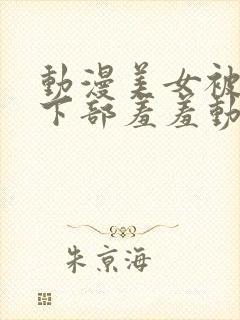 動漫美女被
下部羞羞動
朱京海